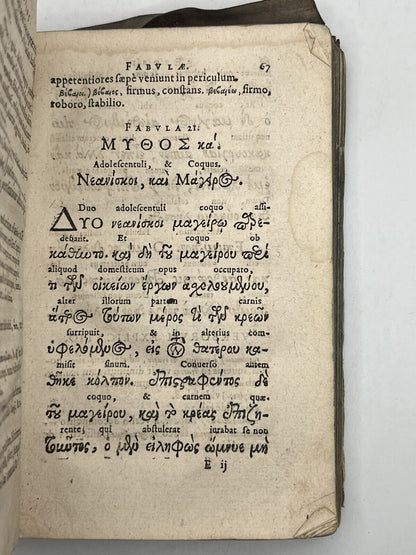 FABVLÆ. 67
appetentiores sæpè veniunt in periculum.
βέβαιοι.) βέβαιος, firmus, constans. βεβαιόω, firmo,
roboro, stabilio.
FABVLA 21.
ΜΥΘΟΣ κα΄.
Adolescentuli, & Coquus.
Νεανίσκοι, καὶ Μάγειρος.
Duo adolescentuli coquo assi-
ΔΥΟ νεανίσκοι μαγείρῳ παρε-
debant. Et coquo ob
κάθηντο. καὶ δὴ τοῦ μαγείρου περί
aliquod domesticum opus occupato,
τι τῶν οἰκείων ἔργων ἀσχολουμένου,
alter illorum partem carnis
ἅτερος τούτων μέρος τι τῶν κρεῶν
surripuit, & in alterius com-
ὑφελόμενος, εἰς τὸν θατέρου κα-
misit sinum. Converso autem
θῆκε κόλπον. ἐπιστραφέντος δὲ
coquo, & carnem quæ-
τοῦ μαγείρου, καὶ τὸ κρέας ἐπιζη-
rente, qui abstulerat iurabat se non
τοῦντος, ὁ μὲν εἰληφὼς ὤμνυε μὴ
E ij